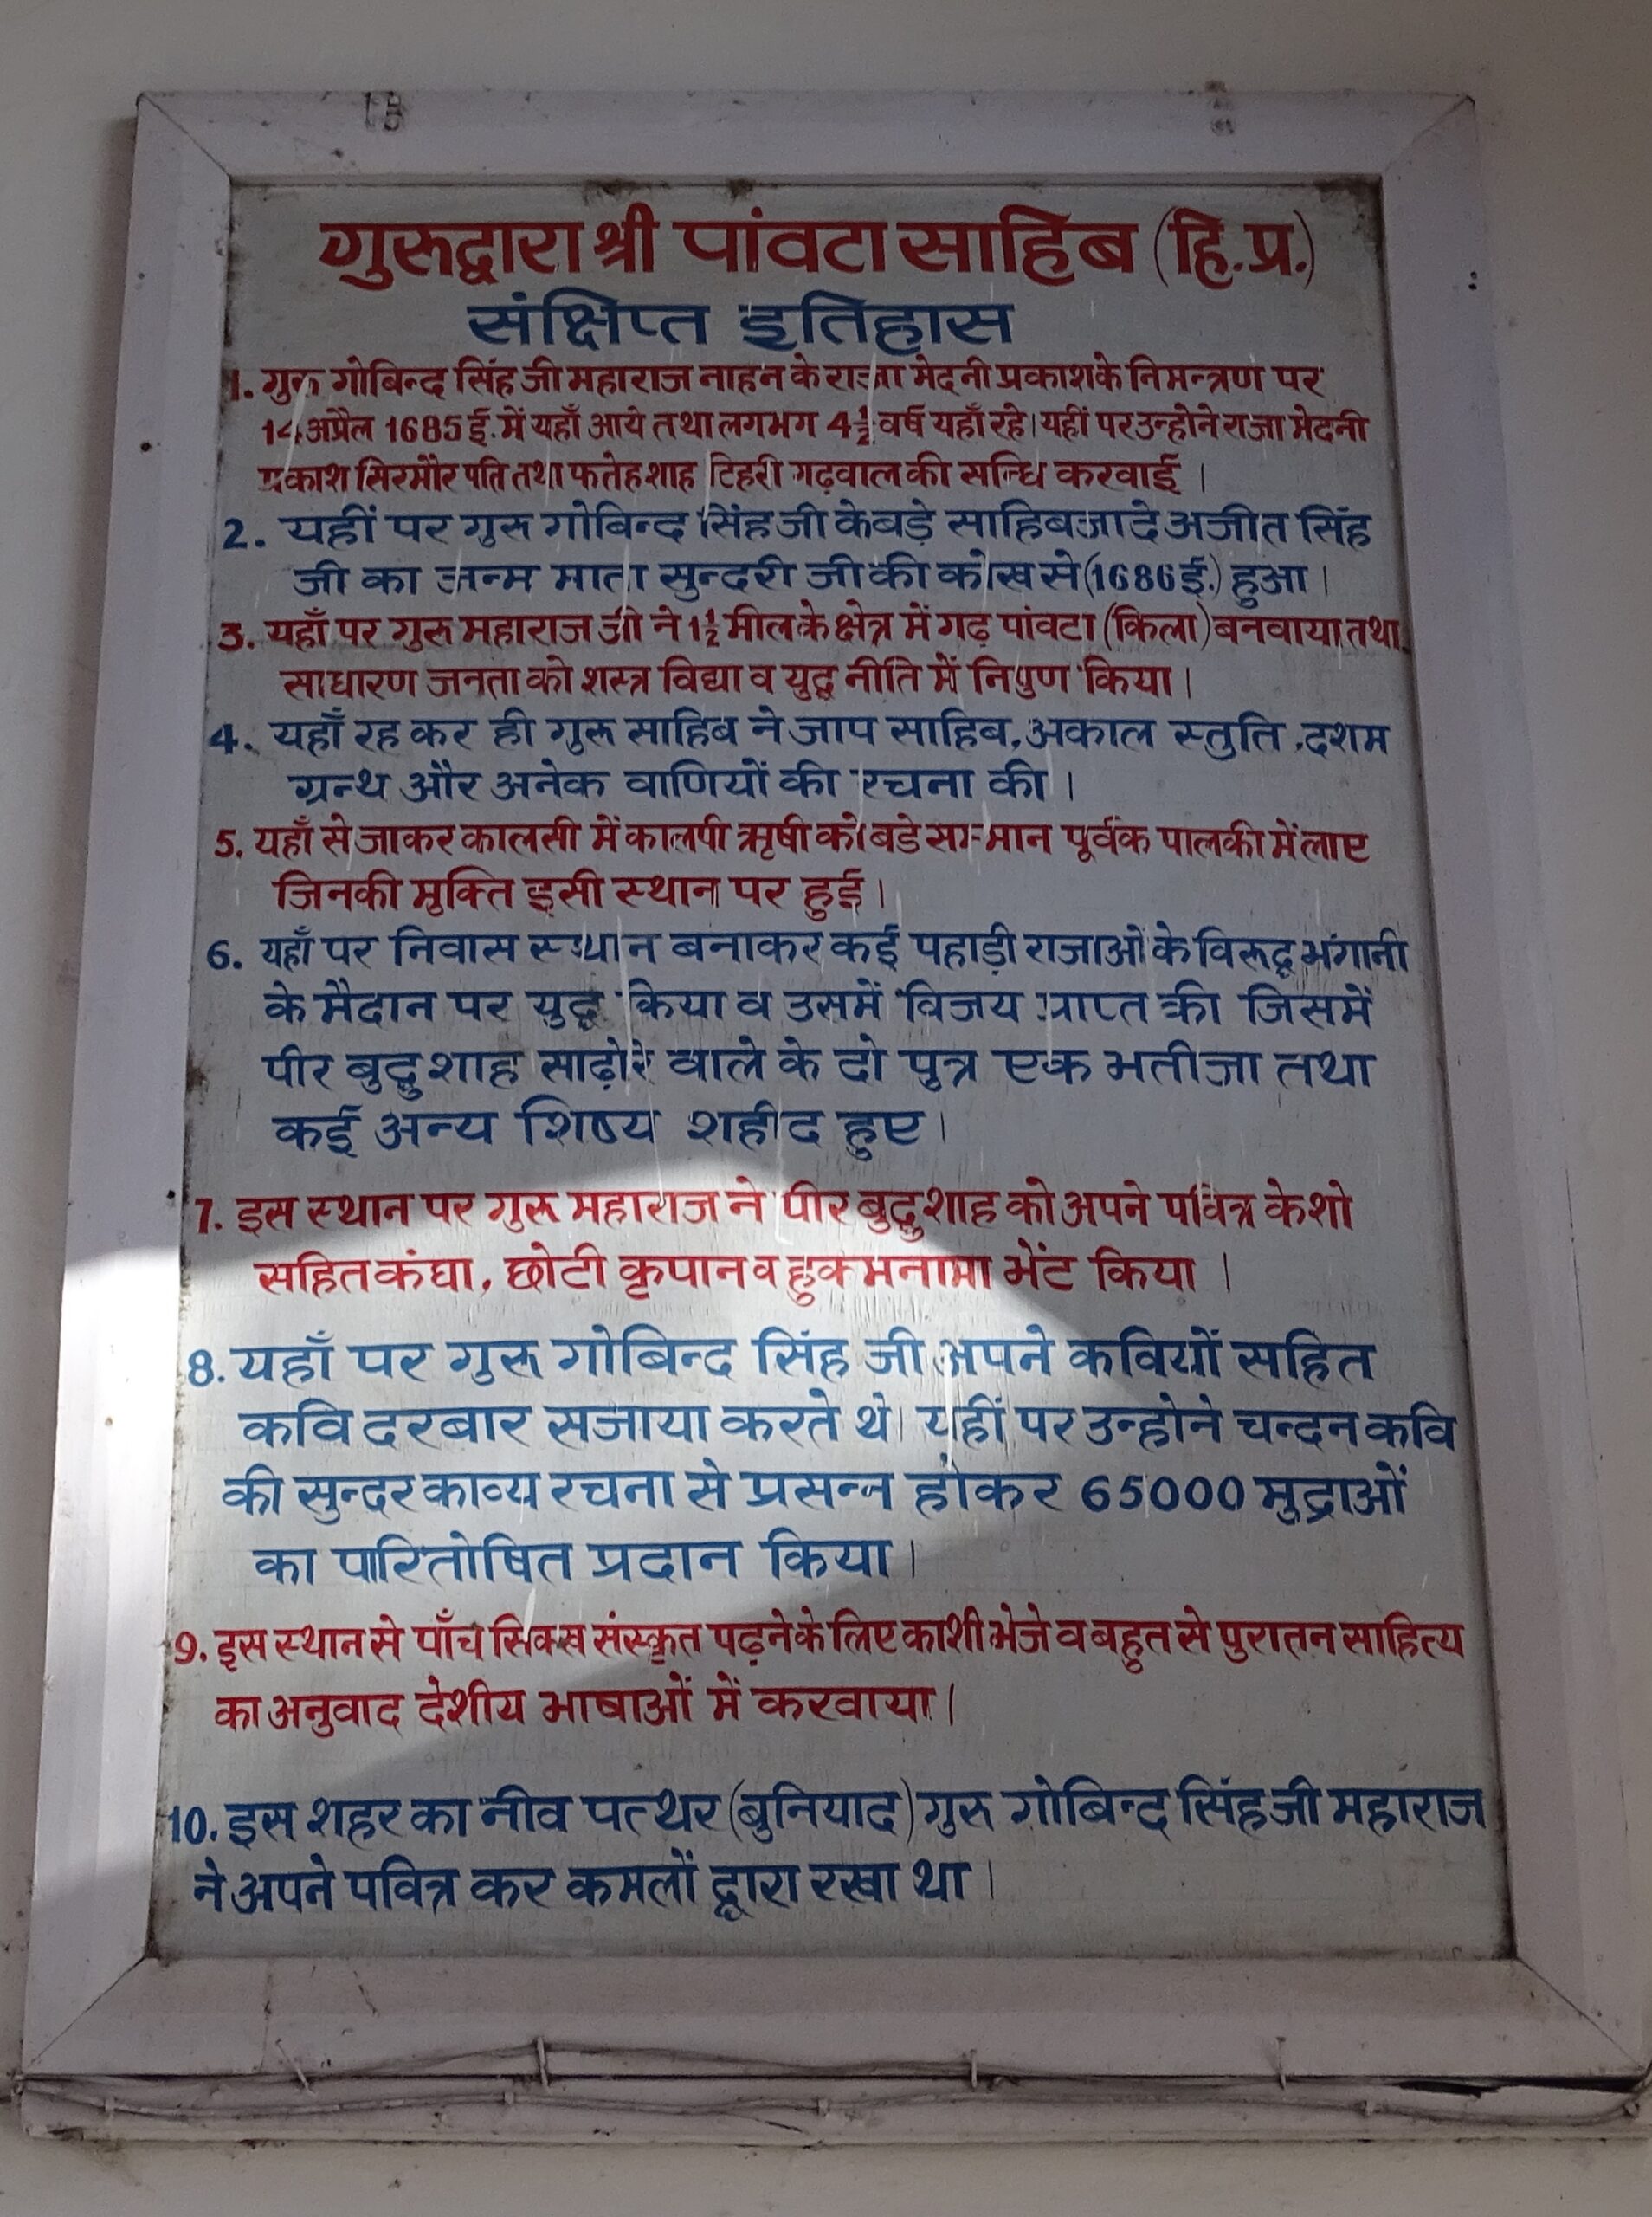 गुरुद्वारा श्री पांवटा साहिब (हि.प्र.)
संक्षिप्त इतिहास
1. गुरु गोबिन्द सिंह जी महाराज नाहन के राजा मेदनी प्रकाश के निमन्त्रण पर
14 अप्रैल 1685 ई. में यहाँ आये तथा लगभग 4½ वर्ष यहाँ रहे। यहीं पर उन्होने राजा मेदनी
प्रकाश सिरमौर पति तथा फतेहशाह टिहरी गढ़वाल की सन्धि करवाई ।
2. यहीं पर गुरु गोबिन्द सिंह जी के बड़े साहिबजादे अजीत सिंह
जी का जन्म माता सुन्दरी जी की कोख से (1686 ई.) हुआ ।
3. यहाँ पर गुरु महाराज जी ने 1½ मील के क्षेत्र में गढ़ पांवटा (किला) बनवाया तथा
साधारण जनता को शस्त्र विद्या व युद्ध नीति में निपुण किया ।
4. यहाँ रह कर ही गुरु साहिब ने जाप साहिब, अकाल स्तुति, दशम
ग्रन्थ और अनेक वाणियों की रचना की ।
5. यहाँ से जाकर कालसी में कालपी ऋषी को बडे सम्मान पूर्वक पालकी में लाए
जिनकी मुक्ति इसी स्थान पर हुई ।
6. यहाँ पर निवास स्थान बनाकर कई पहाड़ी राजाओं के विरूद्ध भंगानी
के मैदान पर युद्ध किया व उसमें विजय प्राप्त की जिसमें
पीर बुद्धुशाह साढ़ोरे वाले के दो पुत्र एक भतीजा तथा
कई अन्य शिष्य शहीद हुए ।
7. इस स्थान पर गुरू महाराज ने पीर बुद्धुशाह को अपने पवित्र केशो
सहित कंघा, छोटी कृपान व हुक्मनामा भेंट किया ।
8. यहाँ पर गुरु गोबिन्द सिंह जी अपने कवियों सहित
कवि दरबार सजाया करते थे। यहीं पर उन्होने चन्दन कवि
की सुन्दर काव्य रचना से प्रसन्न होकर 65000 मुद्राओं
का पारितोषित प्रदान किया ।
9. इस स्थान से पाँच सिक्ख संस्कृत पढ़ने के लिए काशी भेजे व बहुत से पुरातन साहित्य
का अनुवाद देशीय भाषाओं में करवाया ।
10. इस शहर का नीव पत्थर (बुनियाद) गुरु गोबिन्द सिंह जी महाराज
ने अपने पवित्र कर कमलों द्वारा रखा था ।